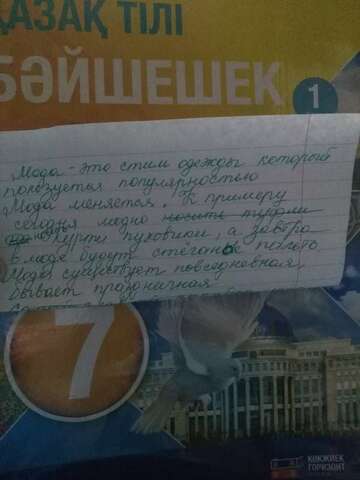 ҚАЗАҚ ТІЛІ
БӘЙШЕШЕК
1
Мода - это стиль одежды который
пользуется популярностью
Мода меняется. К примеру
сегодня модно носить туфли
пуховики, а завтра
в моде будут стёганое пальто
Мода существует повседневная,
бывает праздничная
7
КӨКЖИЕК
ГОРИЗОНТ